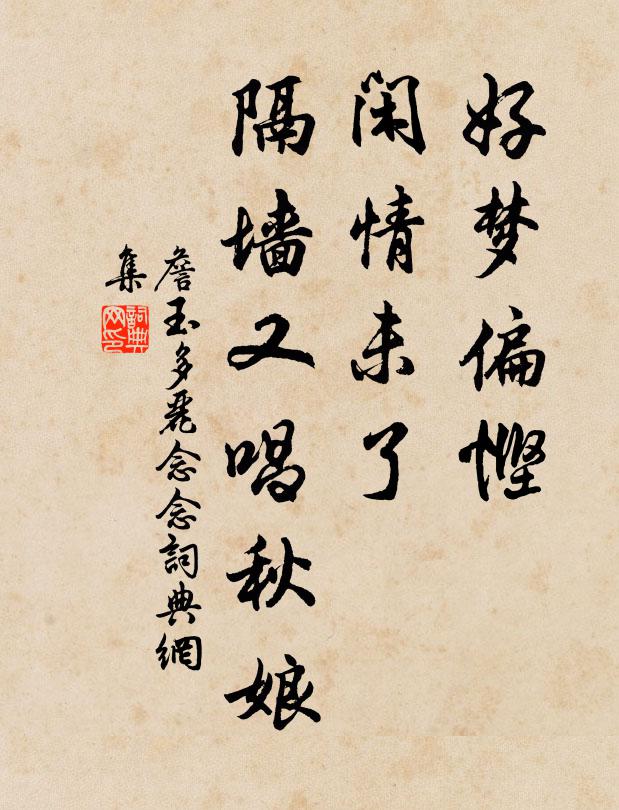 好梦偏慳
闲情未了
隔墙又唱秋娘
詹玉多麗念念詞典網
集
詞典网印